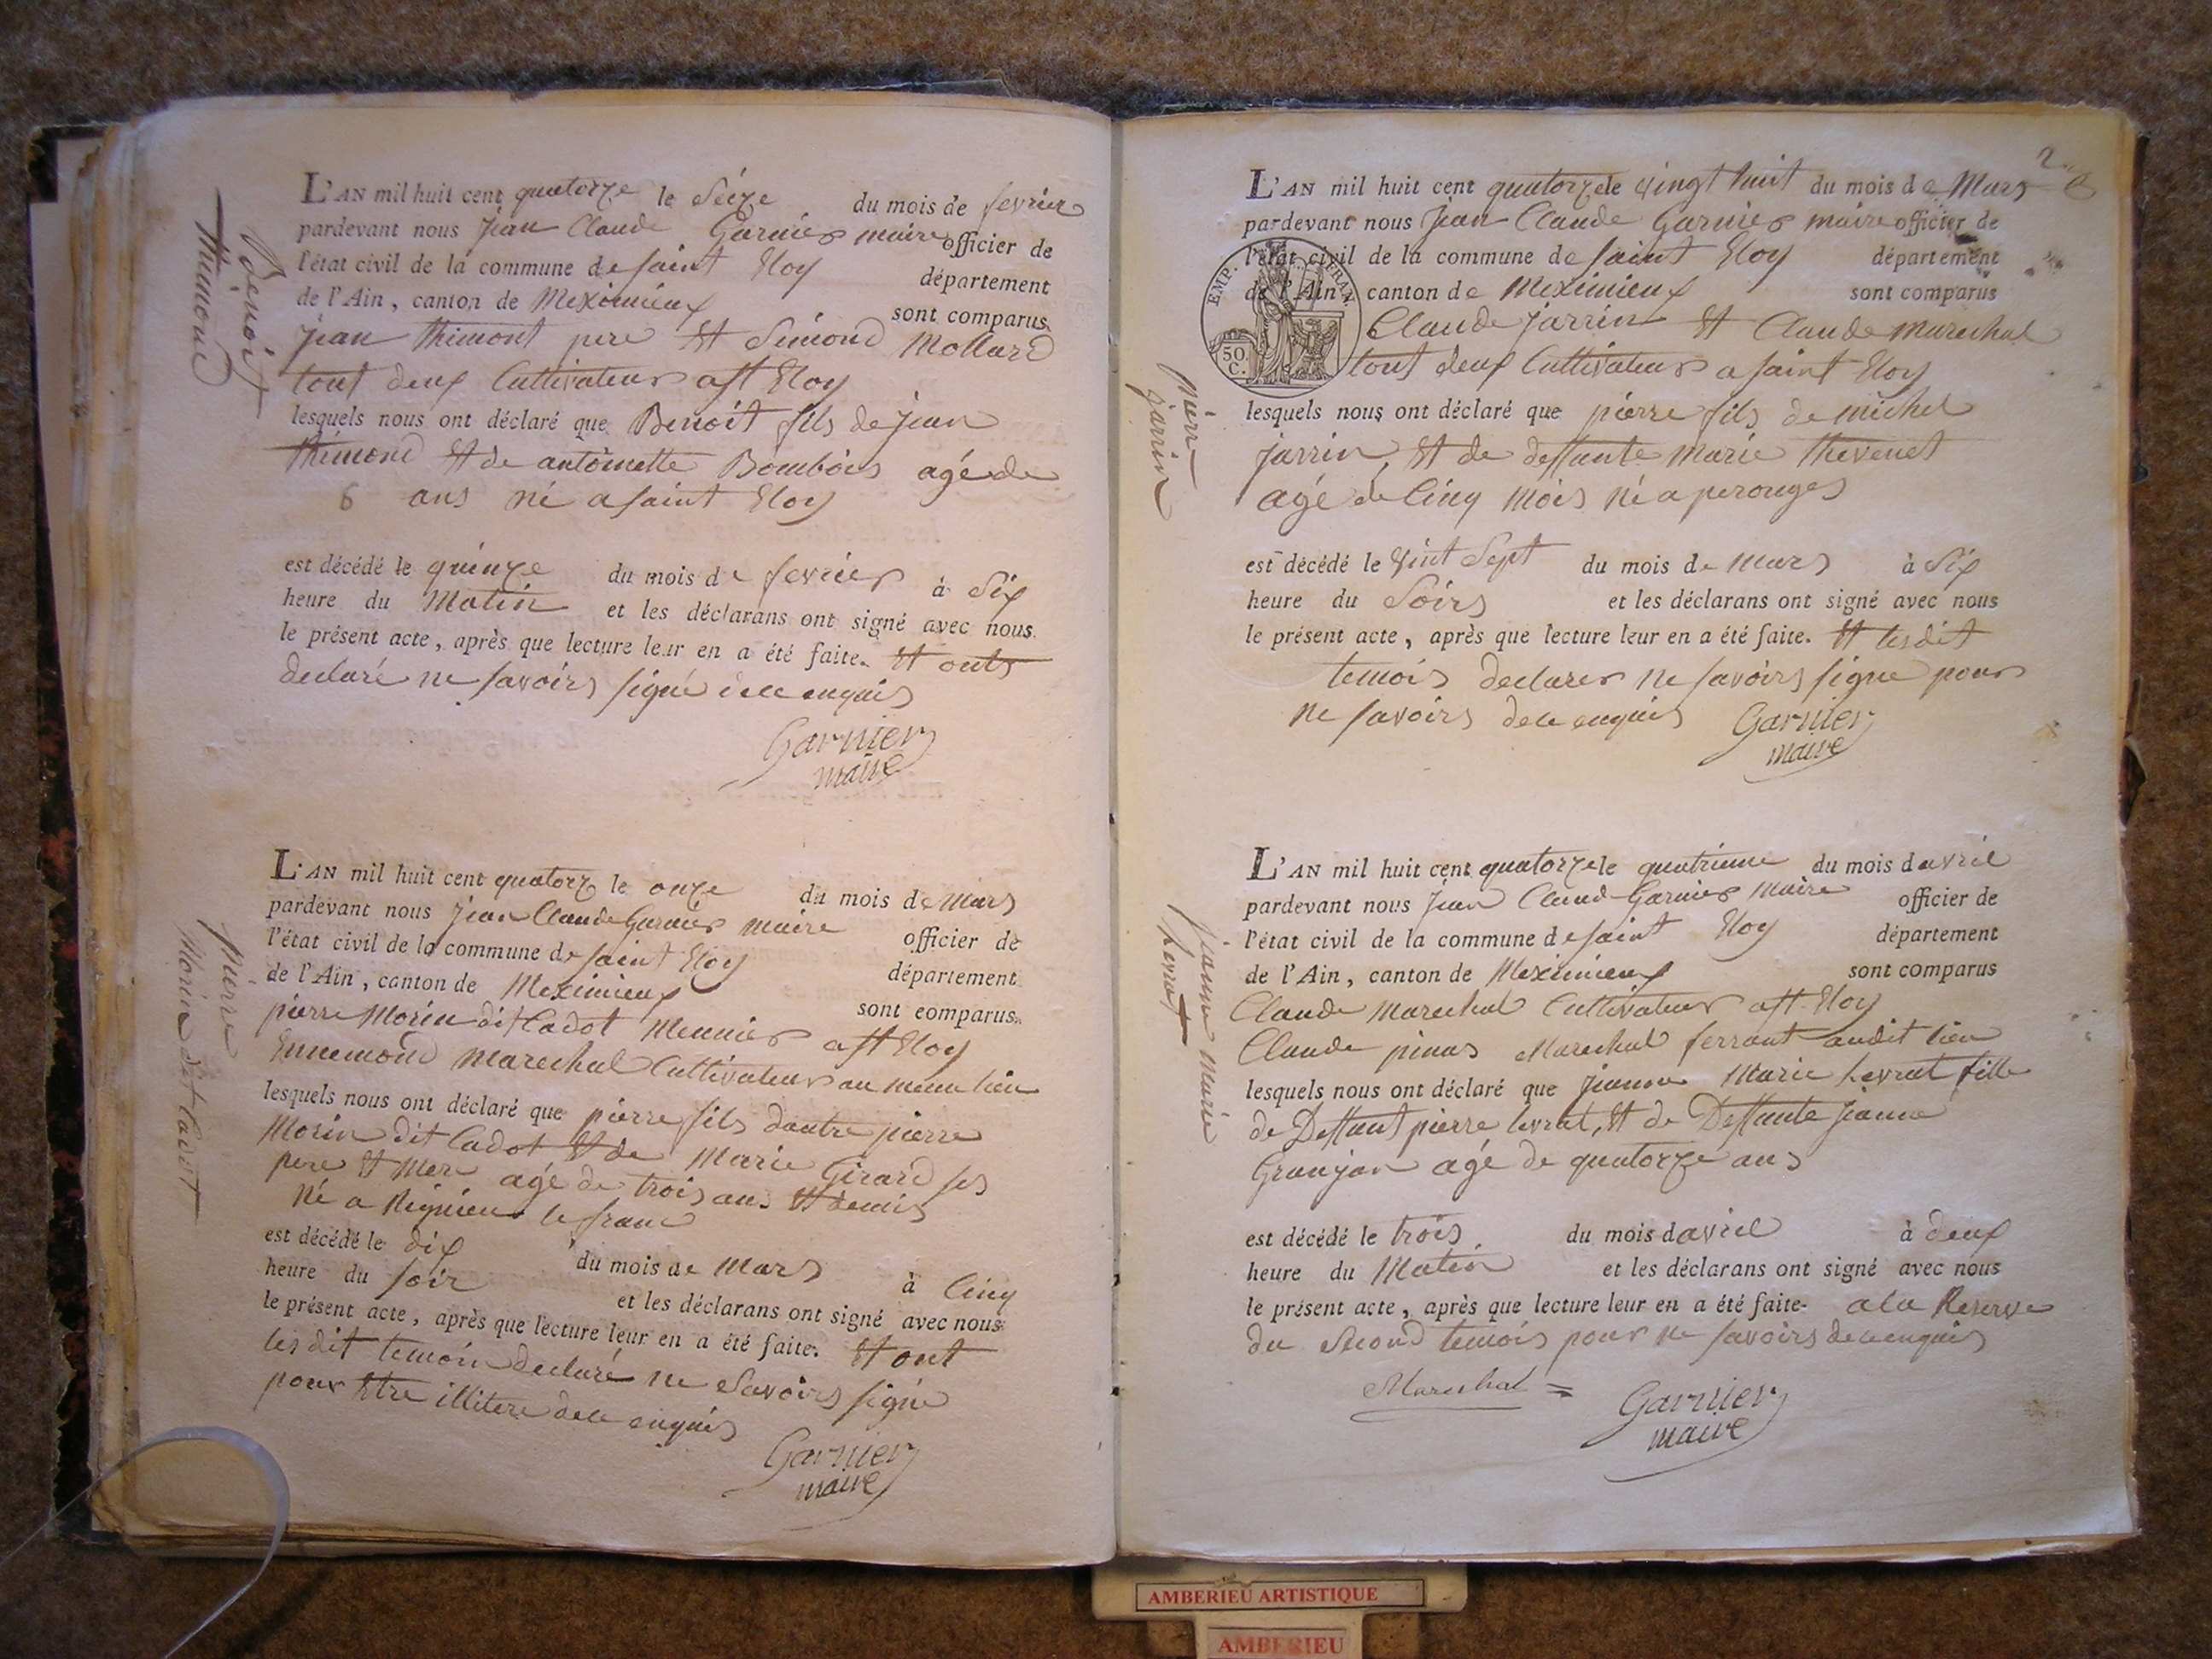 Benoit
thimond
L'AN mil huit cent quatorze le Seize du mois de fevrier
pardevant nous jean Claude Garnier maire officier de
l'état civil de la commune de saint Eloy département
de l'Ain, canton de Meximieux sont comparus
jean thimont pere Et Simond Mollard
tout deux Cultivateur a st Eloy
lesquels nous ont déclaré que Benoit fils de jean
thimond Et de antoinette Bombois agé de
6 ans né a saint Eloy
est décédé le quinze du mois de fevrier à Six
heure du Matin et les déclarans ont signé avec nous
le présent acte, après que lecture leur en a été faite. Et onts
declaré ne savoirs signé dece enquis
Garnier
maire
pierre
Morin dit Cadot
L'AN mil huit cent quatorz le onze du mois de Mars
pardevant nous jean Claude Garnier maire officier de
l'état civil de la commune de saint Eloy département
de l'Ain, canton de Meximieux sont comparus
pierre Morin dit Cadot Meunier a st Eloy
Ennemond Marechal Cultivateur au meme lieu
lesquels nous ont déclaré que pierre fils dautre pierre
Morin dit Cadot Et de Marie Girard ses
pere Et Mere agé de trois ans Et demis
né a Rignieux le franc
est décédé le dix du mois de Mars à Cinq
heure du soir et les déclarans ont signé avec nous
le présent acte, après que lecture leur en a été faite. Et ont
les dit temoin declaré ne Savoirs signé
pour Etre illitere dece enquis
Garnier
maire
2
pierre
jarrin
L'AN mil huit cent quatorze le vingt huit du mois de Mars
pardevant nous Jean Claude Garnier maire officier de
l'état civil de la commune de saint Eloy département
de l'Ain, canton de Meximieux sont comparus
EMP. FRAN.
50.
C.
Claude jarrin Et Claude marechal
tout deux Cultivateur a saint Eloy
lesquels nous ont déclaré que pierre fils de michel
jarrin, Et de deffante Marie thevenet
agé de Cinq Mois né a perouges
est décédé le vint Sept du mois de Mars à Six
heure du Soirs et les déclarans ont signé avec nous
le présent acte, après que lecture leur en a été faite. Et les dit
temois declarer ne savoirs signe pour
ne savoirs dece enquis
Garnier
maire
jeanne marie
Levrat
L'AN mil huit cent quatorze le quatrieme du mois davril
pardevant nous Jean Claud Garnier Maire officier de
l'état civil de la commune de saint Eloy département
de l'Ain, canton de Meximieux sont comparus
Claude Marechal Cultivateur a st Eloy
Claude pinas Marechal ferrant audit lieu
lesquels nous ont déclaré que jeanne Marie Levrat fille
de Deffant pierre levrat, Et de Deffante jeanne
Granjon agé de quatorze ans
est décédé le trois du mois davril à deux
heure du Matin et les déclarans ont signé avec nous
le présent acte, après que lecture leur en a été faite. a la Reserve
du Second temois pour ne savoirs dece enquis
Marechal
Garnier
maire
AMBERIEU ARTISTIQUE
AMBERIEU